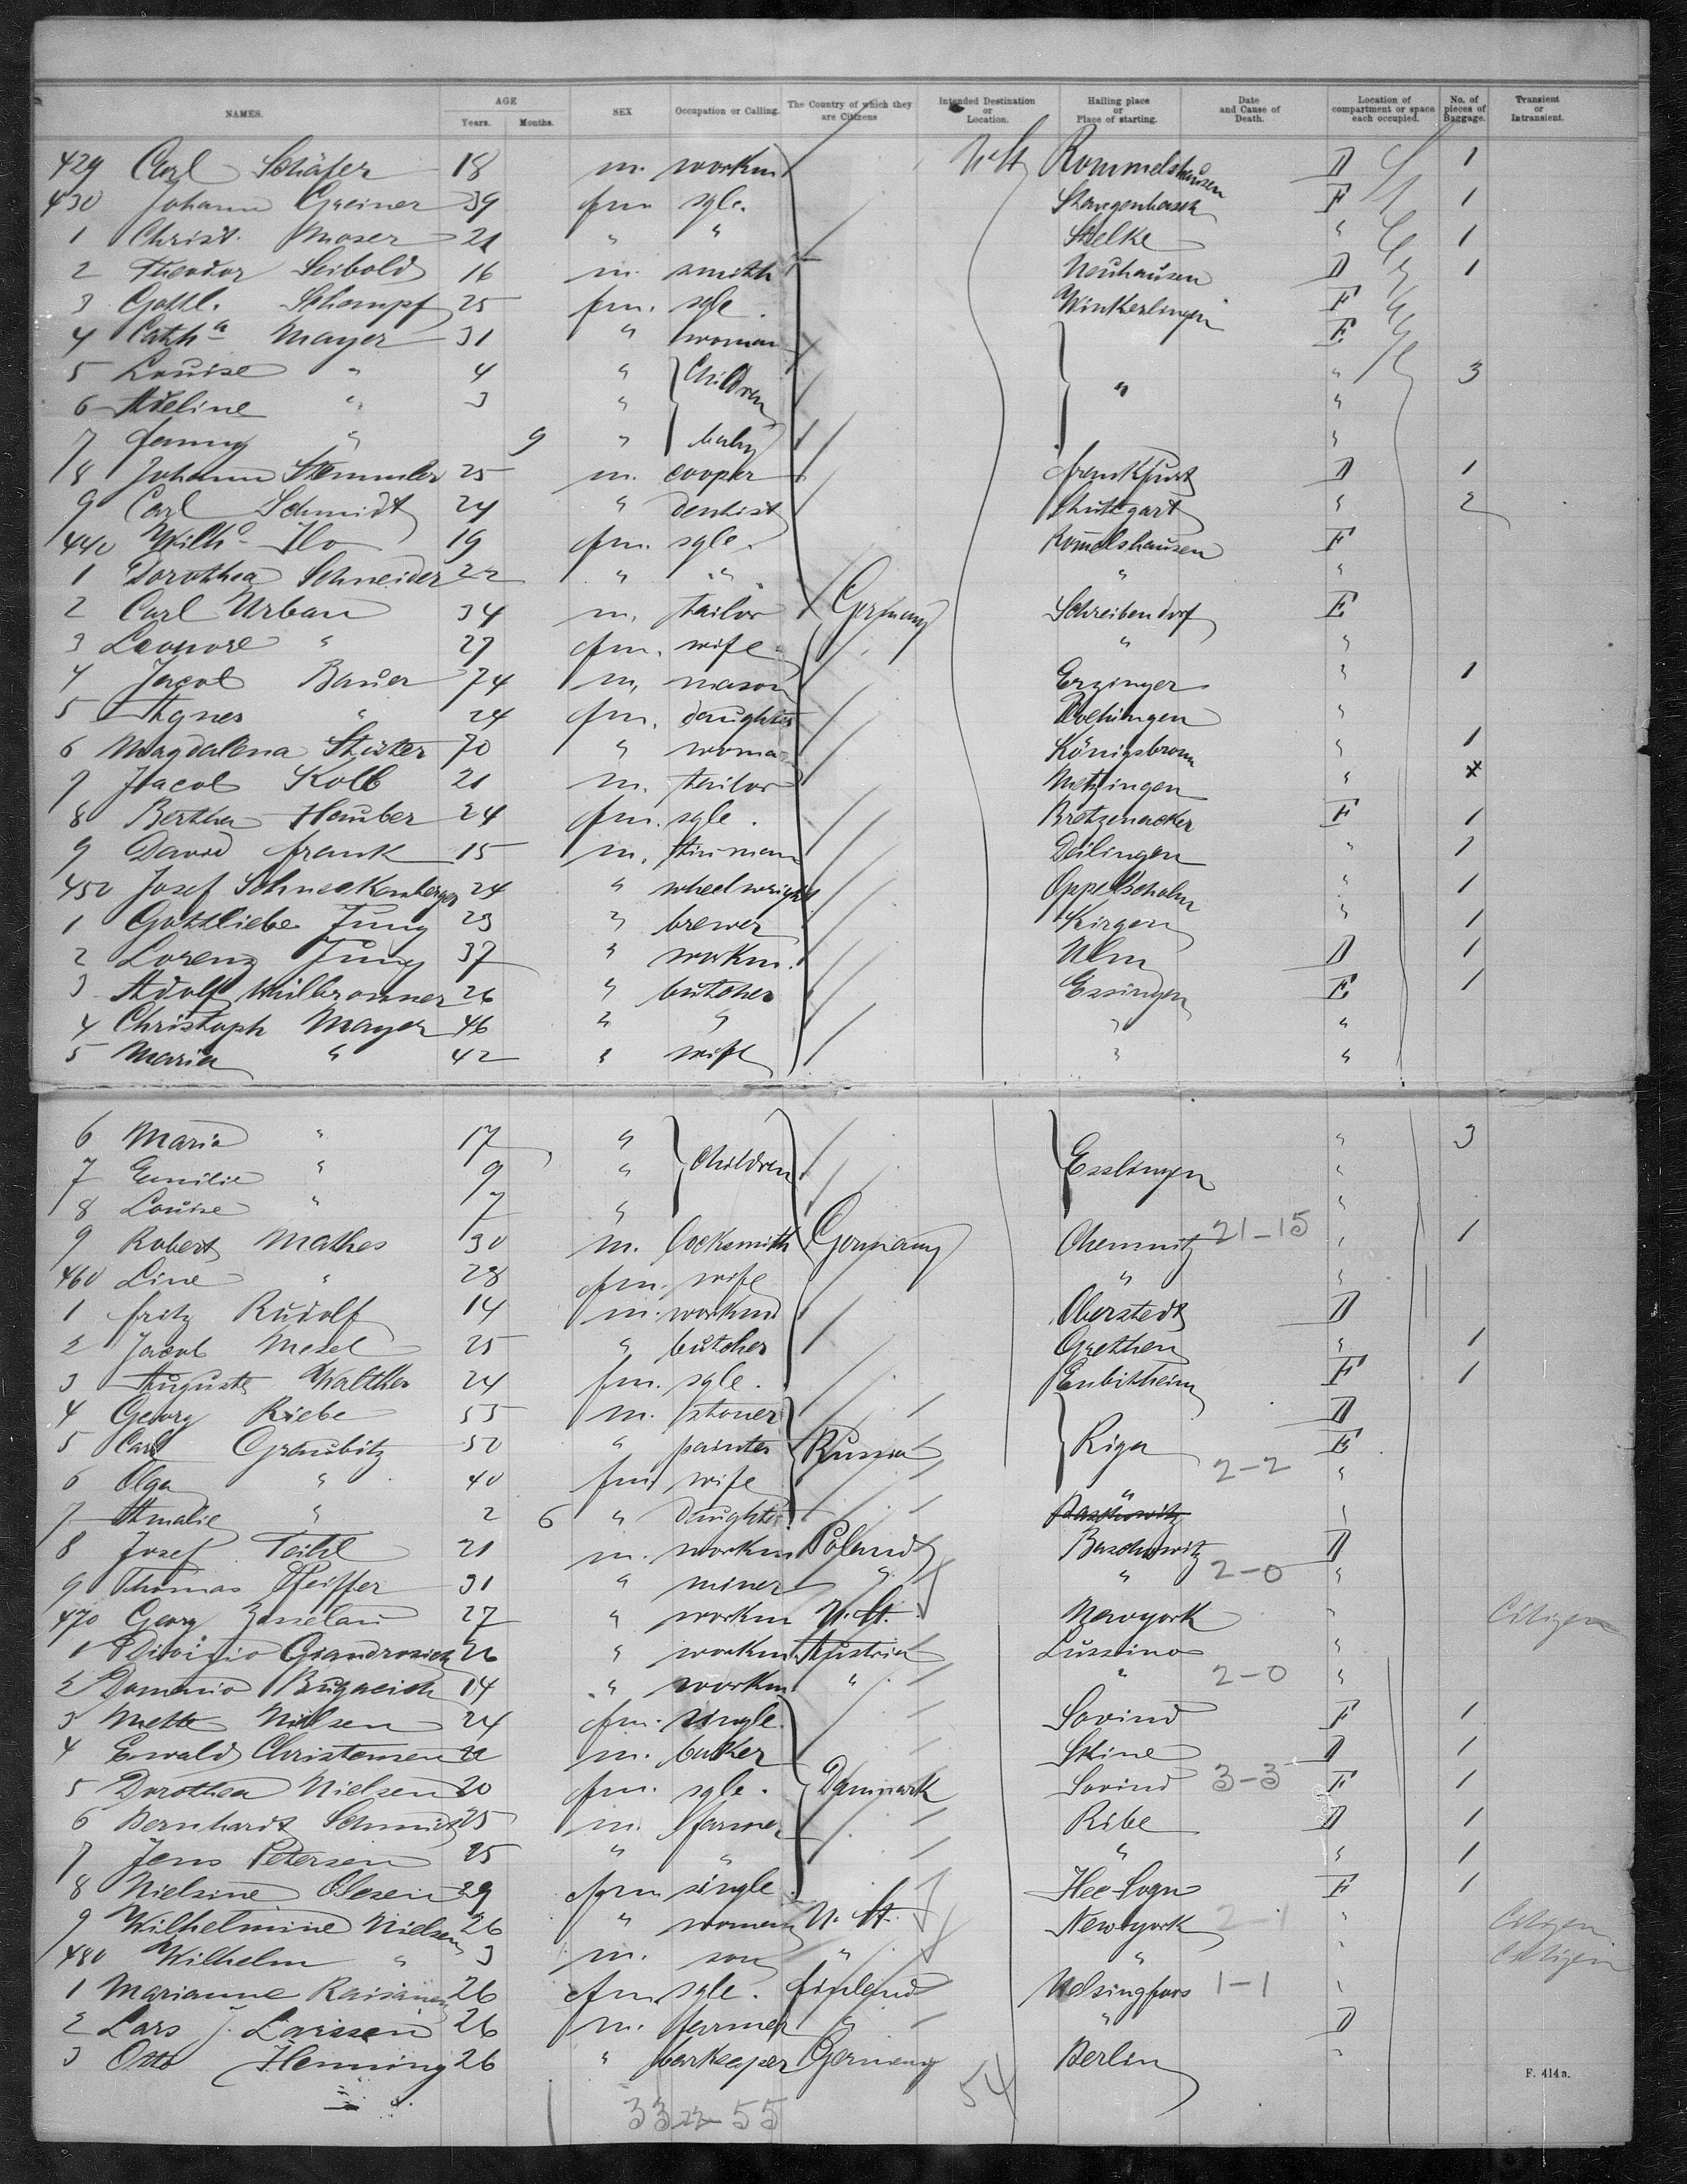 NAMES. AGE Years. Months. SEX Occupation or Calling. The Country of which they are Citizens Intended Destination or Location. Hailing place or Place of starting. Date and Cause of Death. Location of compartment or space each occupied. No. of pieces of Baggage. Transient or Intransient.
429 Carl Schäfer 18 m. workm Rommelshausen D 1
430 Johann Greiner 39 fm sgle. F 1
1 Christ. Moser 21 " " " 1
2 Theodor Seibold 16 m. smith Neuhausen D 1
3 Gottl. Schompf 25 fm. sgle. Winterlingen F
4 Cath.a Mayer 31 " woman E
5 Louise " 4 " Children " " 3
6 Adeline " 3 " "
7 fanny " 9 " baby "
8 Johann Stemmler 25 m. cooper frankfurt D 1
9 Carl Schmidt 24 " dentist Stuttgart " 2
440 Wilh. Ilo 19 fm. sgle. Romelshausen F
1 Dorothea Schneider 22 " " " "
2 Carl Urban 34 m. tailor Germany Schreibendorf E
3 Leonore " 27 fm. wife " "
4 Jacob Bauer 74 m. mason Erzingen " 1
5 Agnes " 24 fm. daughter "
6 Magdalena 70 " woman Königsbronn " 1
7 Jacob Kolb 21 m. tailor Metzingen " x
8 Bertha Hauber 24 fm. sgle. Bretzenacker F 1
9 David frank 15 m. tinman Deilingen " 1
450 Josef Schneckenberger 24 " wheelwright " 1
1 Gottliebe Jung 23 " brewer " 1
2 Lorenz Jung 37 " workm. Ulm D 1
3 Adolf 26 " butcher Essingen E 1
4 Christoph Mayer 46 " " " "
5 Maria " 42 " wife " "
6 Maria " 17 " Children Esslingen " 3
7 Emilie " 9 " "
8 Louise " 7 " "
9 Robert Mathes 30 m. locksmith Germany Chemnitz 21-15 " 1
460 Line " 28 fm. wife " "
1 fritz Rudolf 14 m. workm Oberstedt D
2 Jacob Mesel 25 " butcher Grethen " 1
3 Auguste Walther 24 fm. sgle. F 1
4 Georg Riebe 53 m. Riga D
5 Carl Graubitz 50 " painter Russia E
6 Olga " 40 fm wife 2-2 "
7 Amalie " 2 6 " daughter " "
8 Josef 21 m. workm Poland D
9 Thomas Pfeiffer 31 " miner " " 2-0 "
470 Georg 27 " workm U. St. Newyork " Citizen
1 26 " workm Austria Lussino "
2 14 " workm " " 2-0 "
3 Mette Nielsen 24 fm. single Sovind F 1
4 Ewald Christensen 22 m. baker Danmark D 1
5 Dorothea Nielsen 20 fm. sgle. Sovind 3-3 F 1
6 Bernhardt Schmidt 25 m. farmer Ribe D 1
7 Jens Petersen 25 " " " " 1
8 Nielsine Olesen 29 fm single Hee Sogn F 1
9 Wilhelmine Nielsen 26 " woman U. St. Newyork 2-1 " Citizen
480 Wilhelm " 3 m. son " " " Citizen
1 Marianne Raisanen 26 fm. sgle. finland Helsingfors 1-1 "
2 Lars J. Larssen 26 m. farmer " " D
3 Otto Henning 26 " barkeeper Germany Berlin "
F. 414a.
54
33 22 55